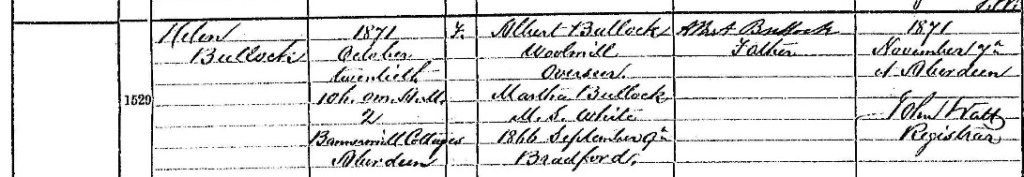 1529
Helen
Bullock
1871
October
twentieth
10h. 0m. A.M.
2
Bannermill Cottages
Aberdeen
F.
Albert Bullock
Woolmill
Overseer.
Martha Bullock
M. S. White
1866 September 9th
Bradford.
Albert Bullock
Father
1871
November 7th
At Aberdeen
John Watt
Registrar